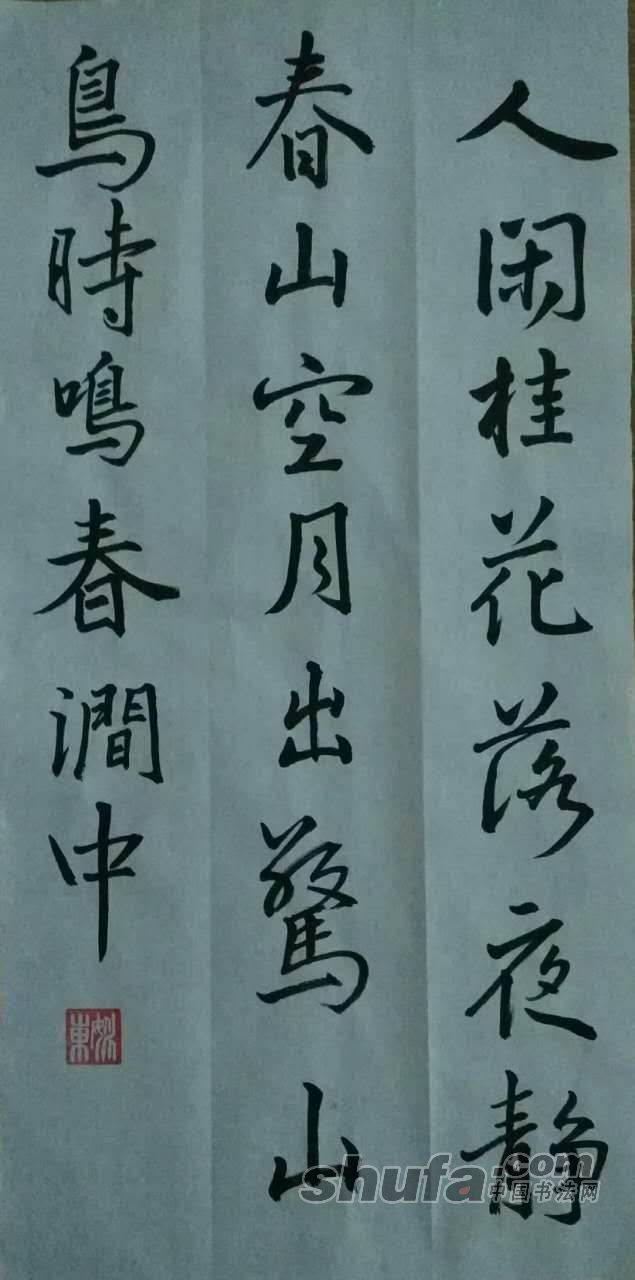 人闲桂花落夜静
春山空月出驚山
鳥時鳴春澗中
shufa.com
中国书法网